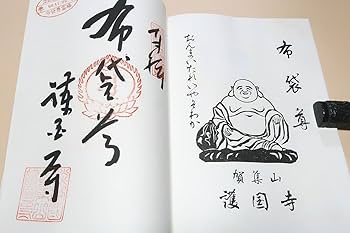 布袋尊
おんまいたれいやそわか
賀集山
護国寺
布袋尊
護国寺